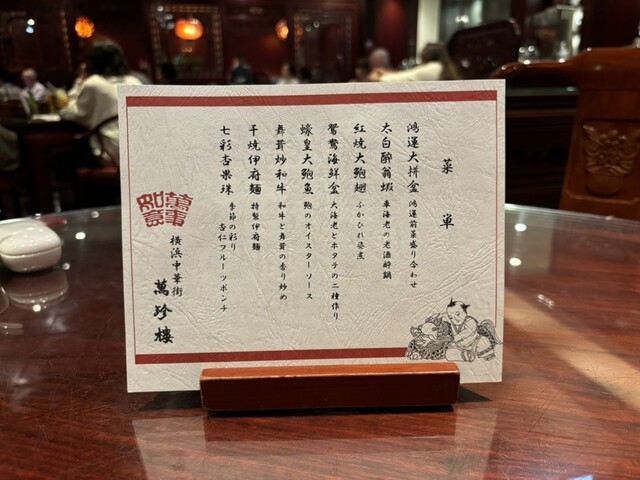 菜単
鴻運大拼盒 鴻運前菜盛り合わせ
太白酔翁蝦 車海老の老酒酔鍋
紅焼大鮑翅 ふかひれ姿煮
鴛鴦海鮮盒 大海老とホタテの二種作り
蠔皇大鮑魚 鮑のオイスターソース
舞茸炒和牛 和牛と舞茸の香り炒め
干焼伊府麺 特製伊府麺
七彩杏果珠 季節の彩り
杏仁フルーツポンチ
萬事如意
横浜中華街
萬珍樓